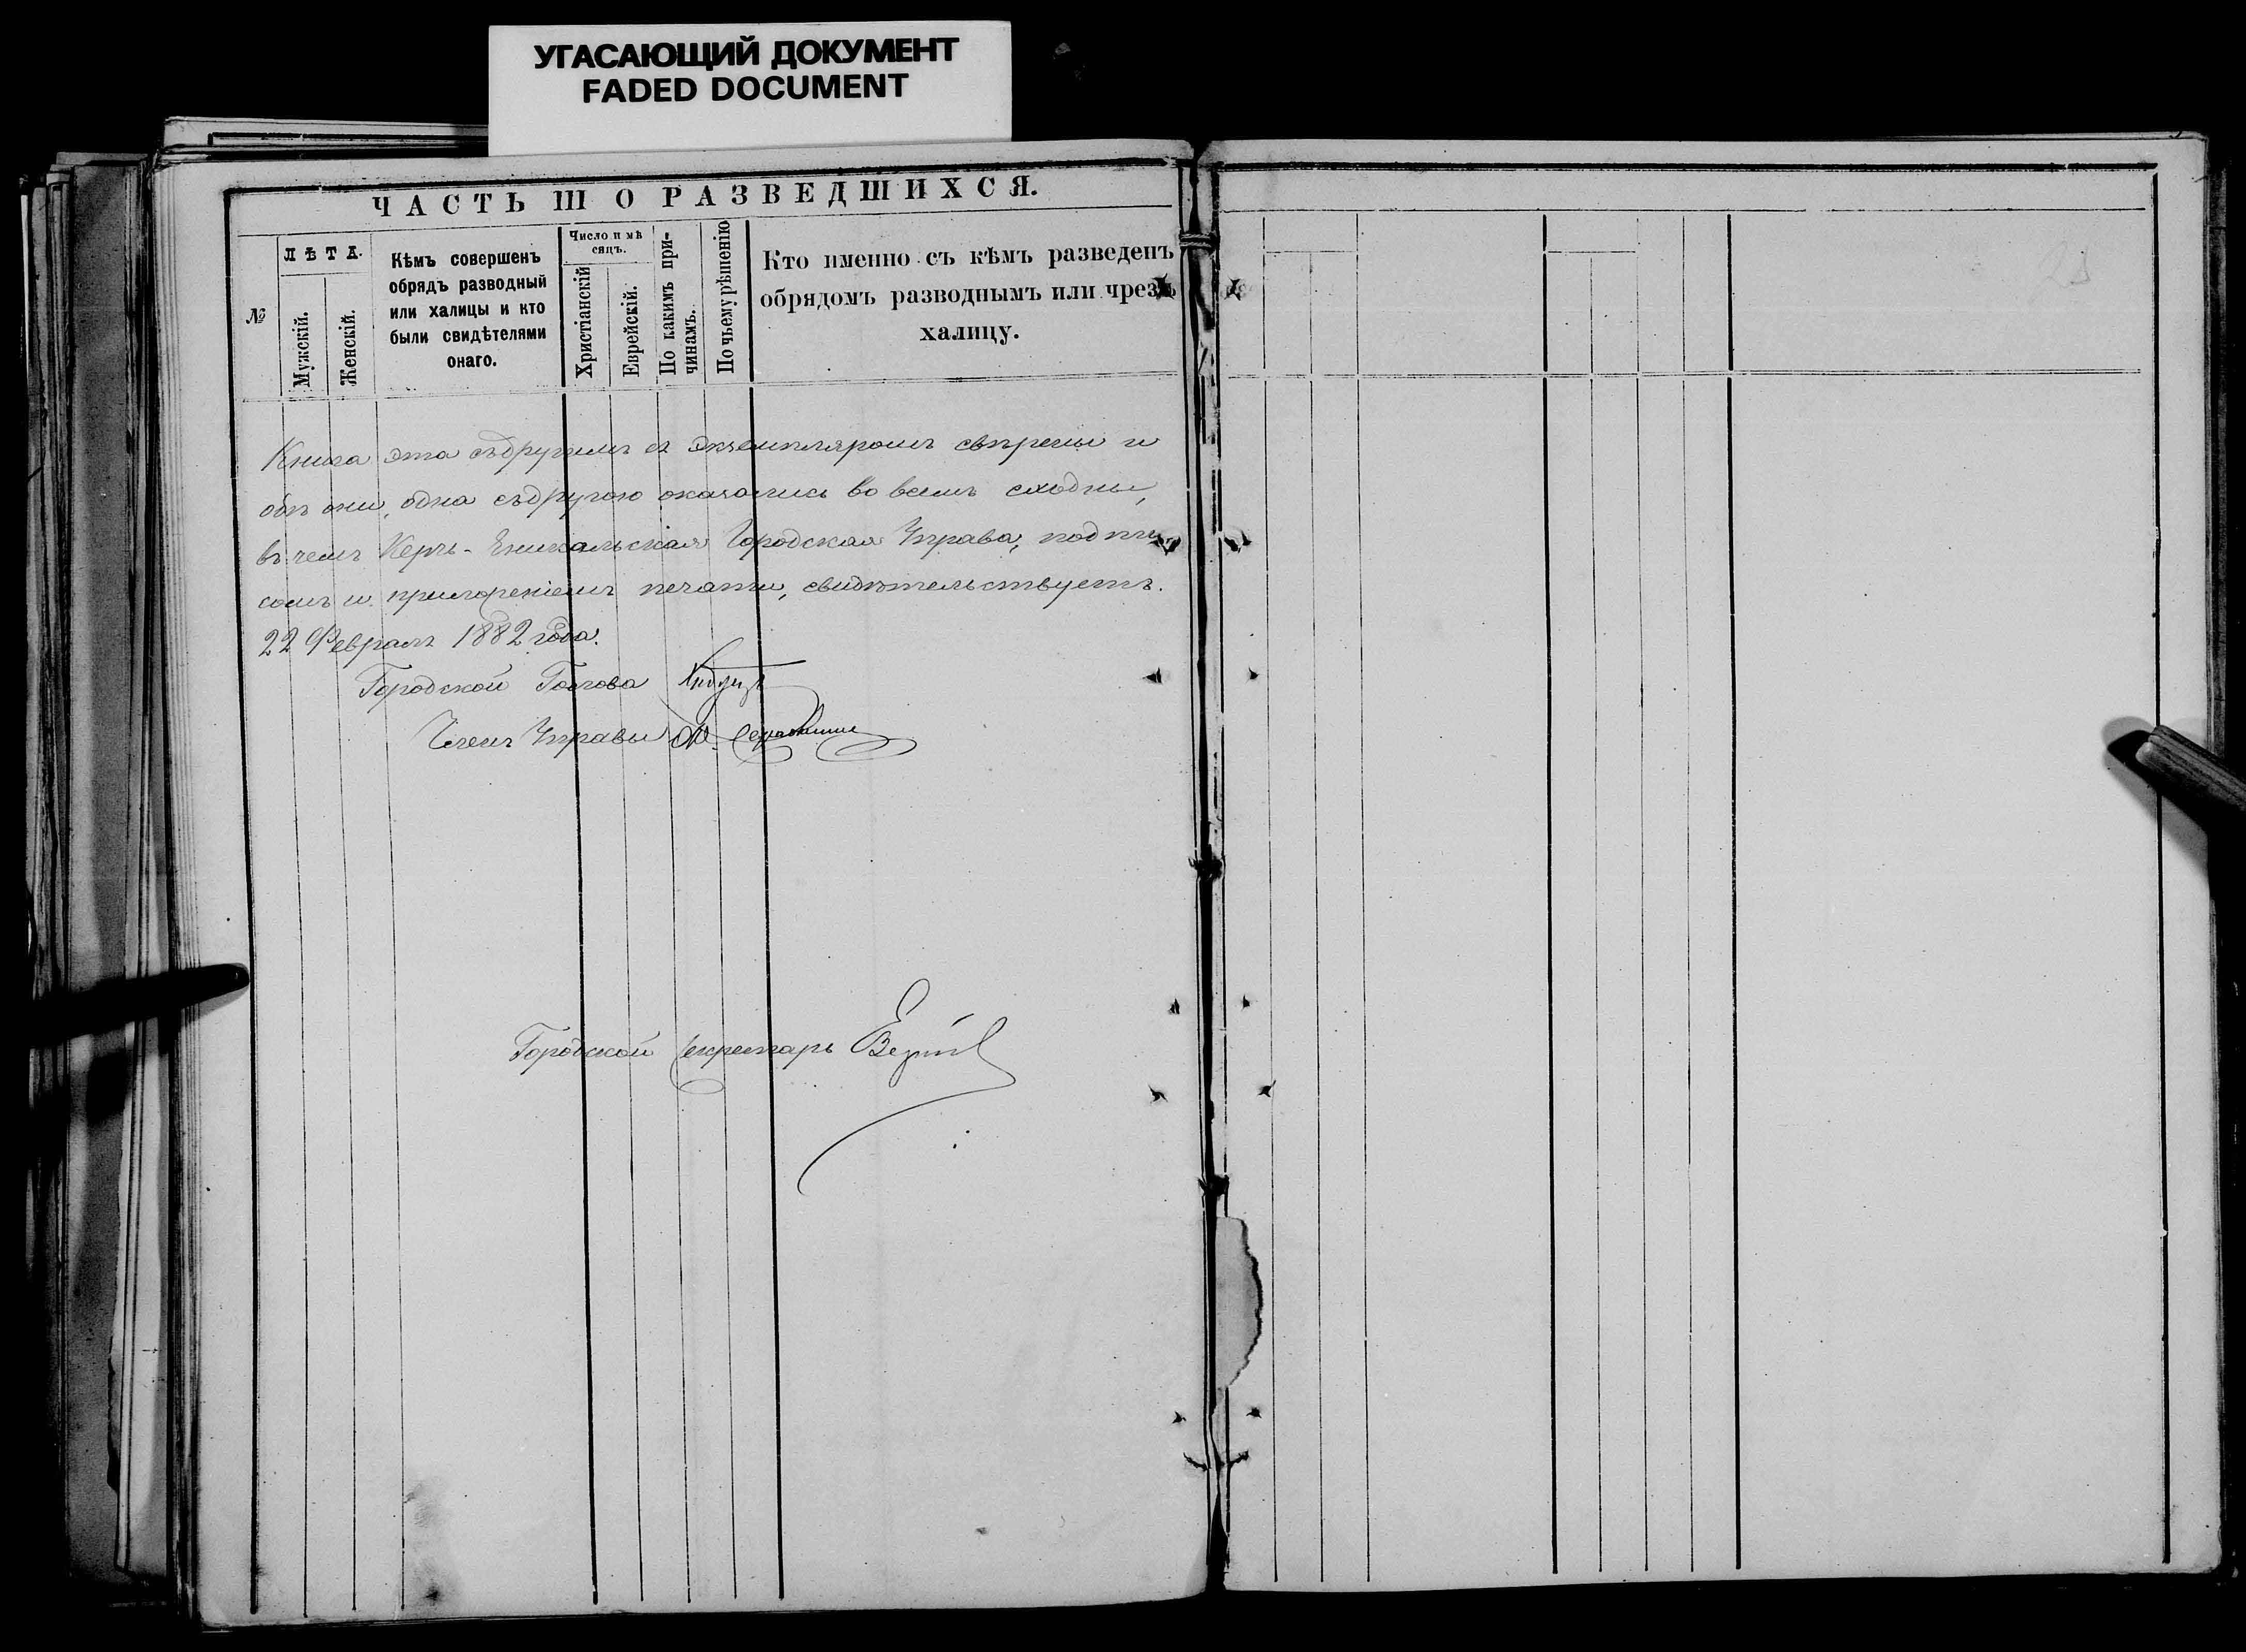 УГАСАЮЩИЙ ДОКУМЕНТ
FADED DOCUMENT
ЧАСТЬ III О РАЗВЕДШИХСЯ.
№
ЛѢТА.
Мужскій.
Женскій.
Кѣмъ совершенъ
обрядъ разводный
или халицы и кто
были свидѣтелями
онаго.
Число и мѣ
сяцъ.
Христіанскій
Еврейскій.
По какимъ при-
чинамъ.
По чьему рѣшенію
Кто именно съ кѣмъ разведенъ
обрядомъ разводнымъ или чрезъ
халицу.
Книга эта съ другимъ ея экземпляромъ свѣрены и
обѣ они, одна съ другою оказались во всемъ сходны,
въ чемъ Керчь-Еникальская Городская Управа, подпи-
сомъ и приложеніемъ печати, свидѣтельствуетъ.
22 Февраля 1882 года.
Городской Голова
Членъ Управы
Городской Секретарь